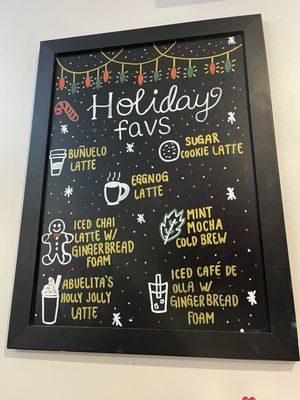 Holiday
favs
BUÑUELO
LATTE
SUGAR
COOKIE LATTE
EGGNOG
LATTE
ICED CHAI
LATTE W/
GINGERBREAD
FOAM
MINT
MOCHA
COLD BREW
ABUELITA'S
HOLLY JOLLY
LATTE
ICED CAFÉ DE
OLLA W/
GINGERBREAD
FOAM